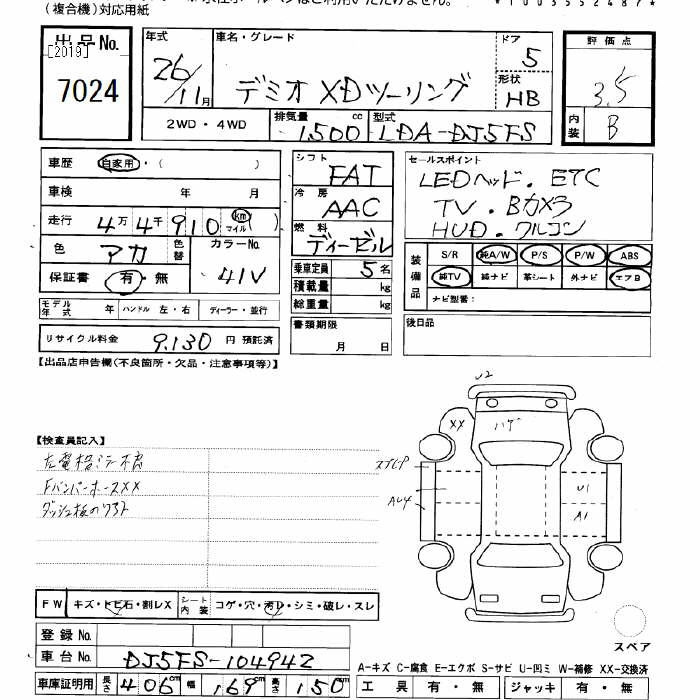 (複合機)対応用紙
*1003552487*
出品No.
[2019]
7024
年式
26/11月
車名・グレード
デミオ XDツーリング
ドア
5
形状
HB
評価点
3.5
内装
B
2WD・4WD
排気量
1500cc
型式
LDA-DJ5FS
車歴
自家用・( )
車検 年 月
走行 4万4千910 km マイル( )
色 アカ
色替
カラーNo.
41V
保証書 有・無
シフト
FAT
冷房
AAC
燃料
ディーゼル
乗車定員 5名
積載量 kg
総重量 kg
セールスポイント
LEDヘッド・ETC
TV・Bカメラ
HUD・クルコン
装備品
S/R 純A/W P/S P/W ABS
純TV 純ナビ 革シート 外ナビ エアB
ナビ型番:
モデル年式 年 ハンドル 左・右 ディーラー・並行
リサイクル料金 9,130 円 預託済
書類期限
月 日
後日品
【出品店申告欄(不良箇所・欠品・注意事項等)】
【検査員記入】
左電格ミラー
FバンパーホースXX
U2
XX
ハゲ
U1
A1
FW キズ・トビ石・割レX
シート内装 コゲ・穴・汚レ・シミ・破レ・スレ
登録No.
車台No. DJ5FS-104942
車庫証明用 長さ 406cm 幅 169cm 高さ 150cm
スペア
A-キズ C-腐食 E-エクボ S-サビ U-凹ミ W-補修 XX-交換済
工具 有・無 ジャッキ 有・無